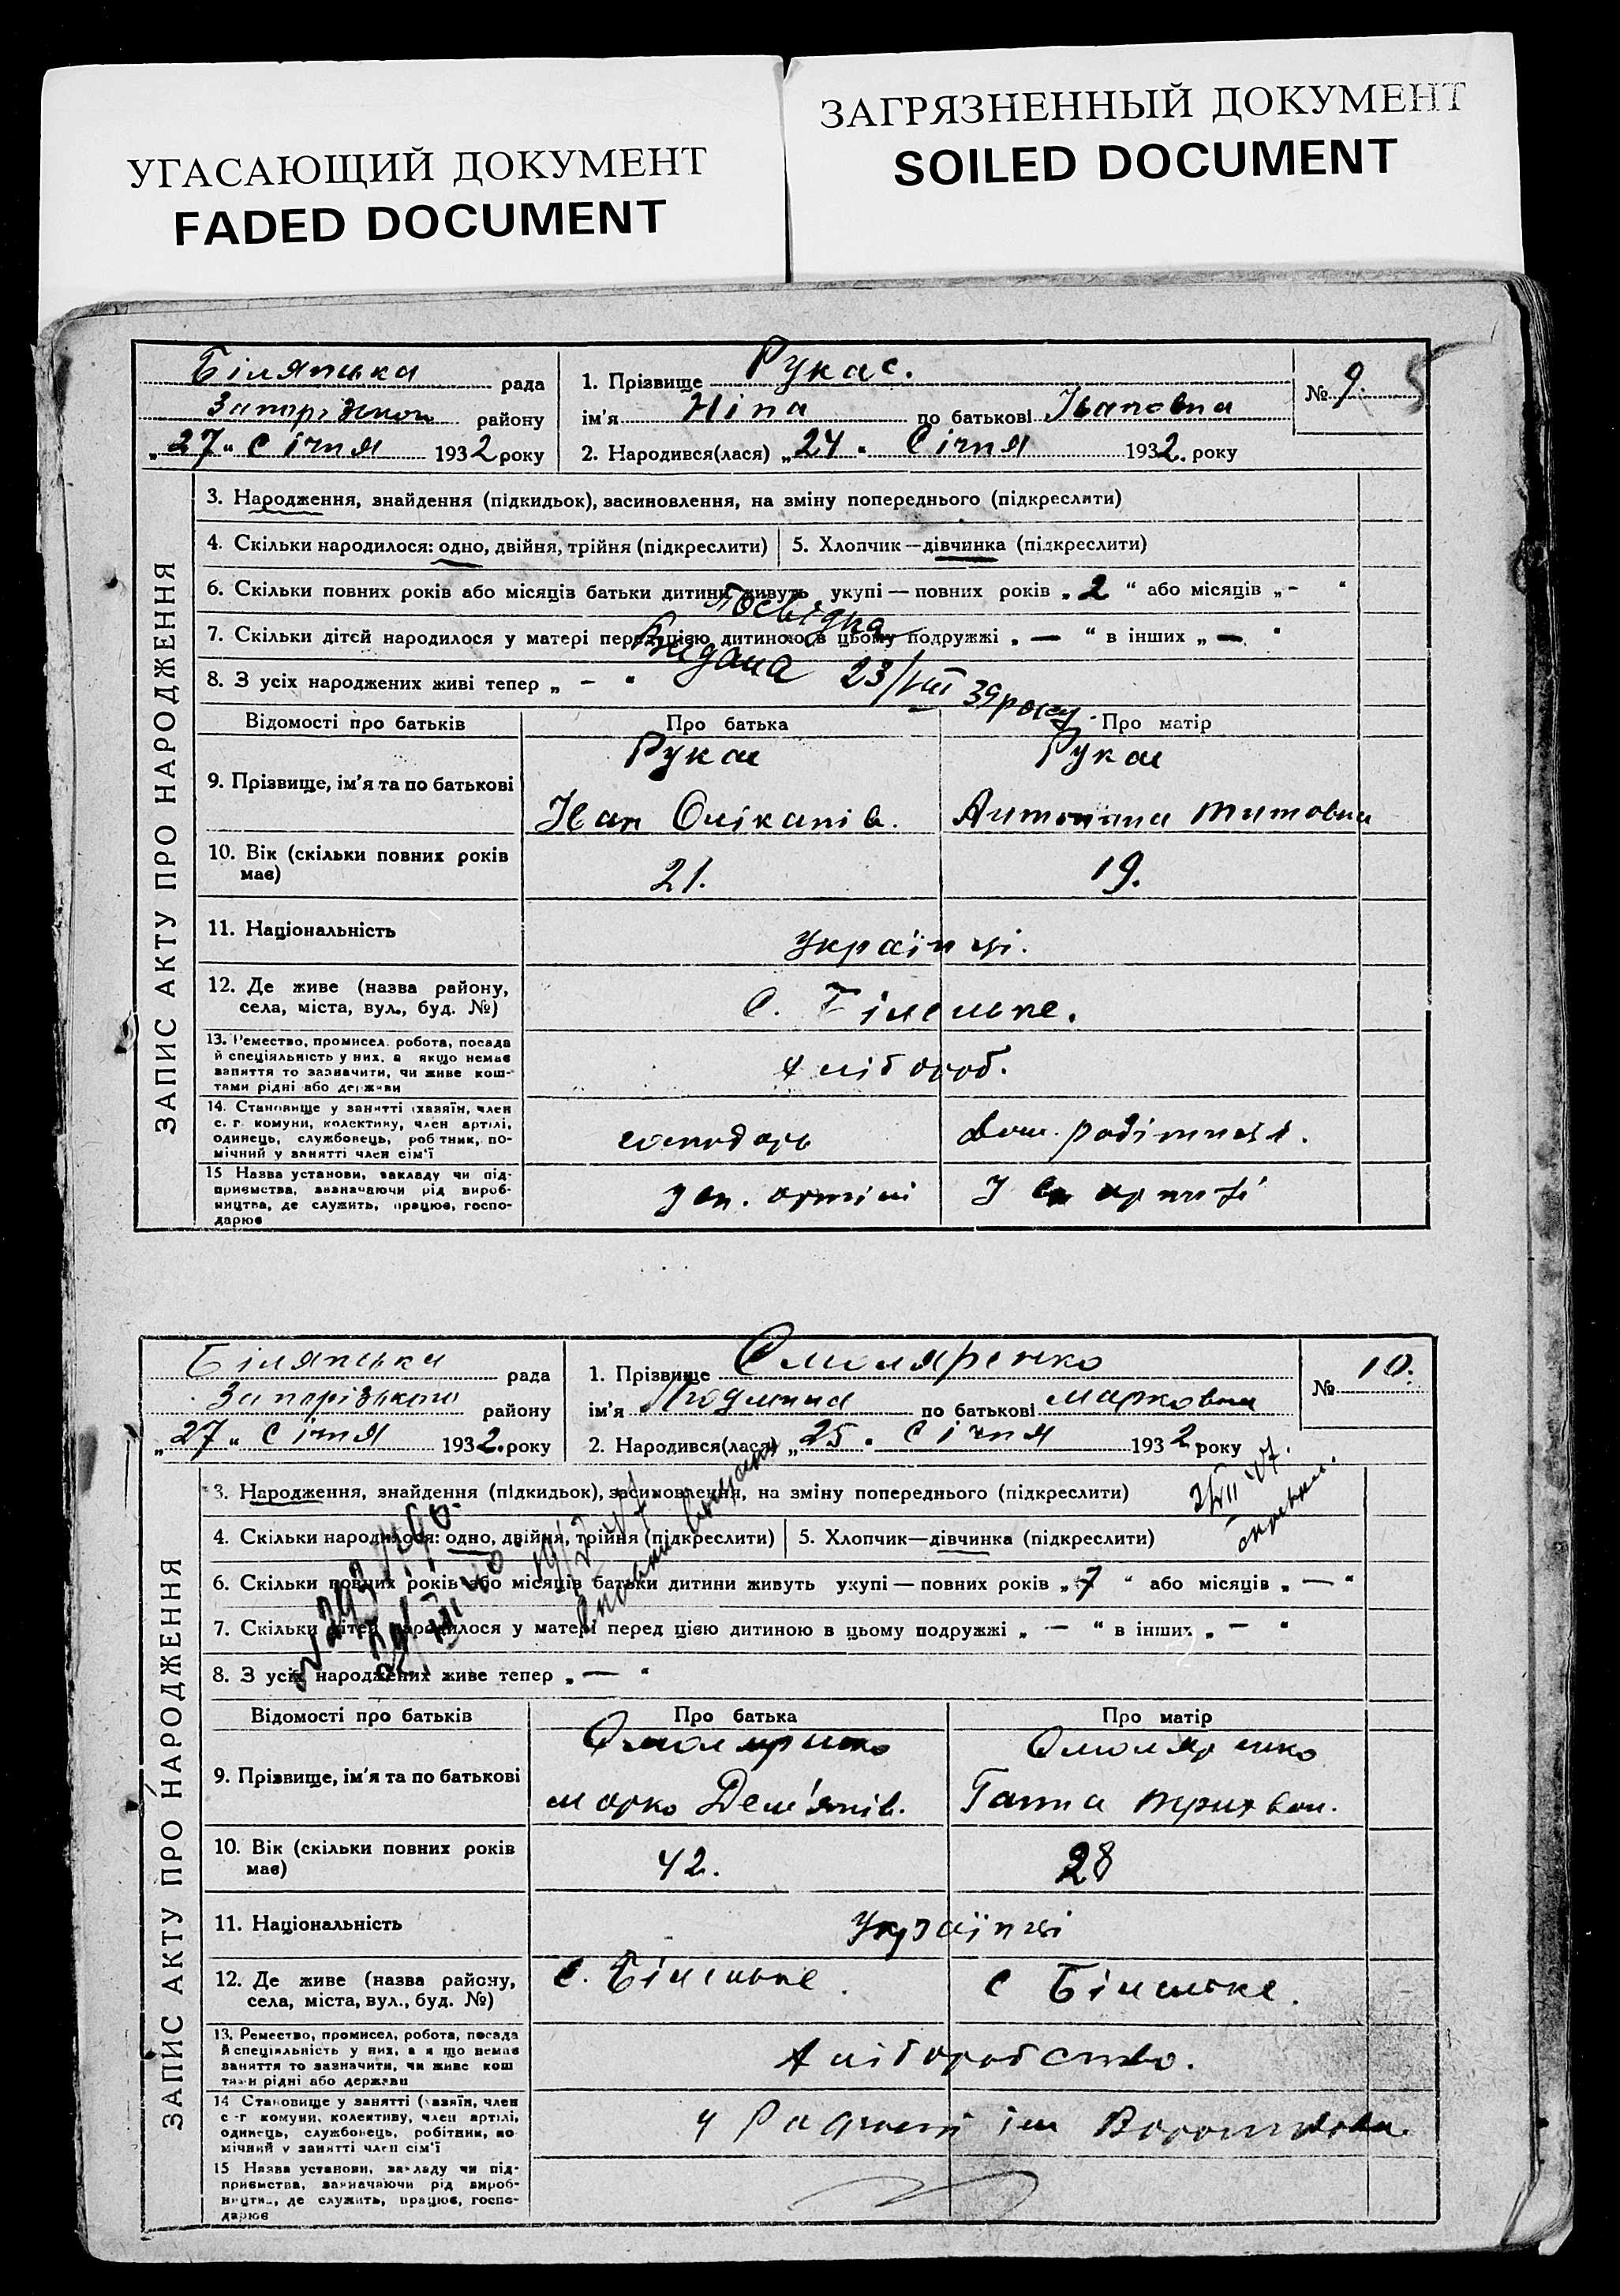 УГАСАЮЩИЙ ДОКУМЕНТ
FADED DOCUMENT
ЗАГРЯЗНЕННЫЙ ДОКУМЕНТ
SOILED DOCUMENT
ЗАПИС АКТУ ПРО НАРОДЖЕННЯ
Білянська рада
району
„27“ Січня 1932 року
1. Прізвище Рукас.
ім'я Ніна по батькові Івановна
2. Народився(лася) „24“ Січня 1932. року
№ 9. 5
3. Народження, знайдення (підкидьок), засиновлення, на зміну попереднього (підкреслити)
4. Скільки народилося: одно, двійня, трійня (підкреслити)
5. Хлопчик—дівчинка (підкреслити)
6. Скільки повних років або місяців батьки дитини живуть укупі — повних років „2“ або місяців „-“
7. Скільки дітей народилося у матері перед цією дитиною в цьому подружжі „—“ в інших „—“
8. З усіх народжених живі тепер „-“
Посвідка
Видана 23/VIII 39 року.
Відомості про батьків
Про батька
Про матір
9. Прізвище, ім'я та по батькові
Рукас
Іван
Рукас
Антонина Титовна
10. Вік (скільки повних років має)
21.
19.
11. Національність
Українці.
12. Де живе (назва району, села, міста, вул., буд. №)
С. Біленьке.
13. Ремество, промисел, робота, посада
й спеціяльність у них, а якщо немає
заняття то зазначити, чи живе кош-
тами рідні або держави
Хлібороб.
14. Становище у занятті (хазяїн, член
с.-г. комуни, колективу, член артілі,
одинець, службовець, робітник, по-
мічний у занятті член сім'ї
господарь
15 Назва установи, закладу чи під-
приємства, зазначаючи рід вироб-
ництва, де служить, працює, госпо-
дарює
У артілі
У артілі
ЗАПИС АКТУ ПРО НАРОДЖЕННЯ
Білянська рада
Запорізького району
„27“ Січня 1932. року
1. Прізвище Смоляренко
ім'я Людмила по батькові Марковна
2. Народився(лася) „25“ Січня 1932 року
№ 10.
3. Народження, знайдення (підкидьок), засиновлення, на зміну попереднього (підкреслити)
4. Скільки народилося: одно, двійня, трійня (підкреслити)
5. Хлопчик—дівчинка (підкреслити)
6. Скільки повних років або місяців батьки дитини живуть укупі — повних років „7“ або місяців „—“
7. Скільки дітей народилося у матері перед цією дитиною в цьому подружжі „—“ в інших „—“
8. З усіх народжених живе тепер „—“
Відомості про батьків
Про батька
Про матір
9. Прізвище, ім'я та по батькові
Смоляренко
Марко Дем'янів.
Смоляренко
Ганна
10. Вік (скільки повних років має)
42.
28
11. Національність
Українці
12. Де живе (назва району, села, міста, вул., буд. №)
с. Біленьке.
с Біленьке.
13. Ремество, промисел, робота, посада
й спеціяльність у них, а якщо немає
заняття то зазначити, чи живе кош
тами рідні або держави
Хліборобство.
14 Становище у занятті (хазяїн, член
с-г комуни, колективу, член артілі,
одинець, службовець, робітник, по
мічний у занятті член сім'ї
ім Ворошилова.
15 Назва установи, закладу чи під-
приємства, зазначаючи рід вироб-
ництва, де служить, працює, госпо-
дарює